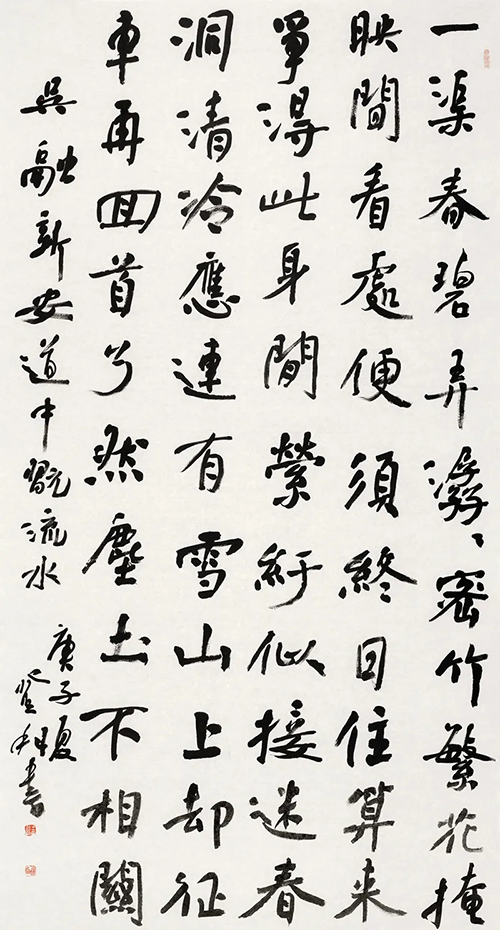 一渠春碧弄潺〻密竹繁花掩
映間看處便須終日住算来
爭得此身閒縈紆似接迷春
洞清冷應連有雪山上却征
車再回首了然塵土不相關
吳融新安道中翫流水
庚子夏
登書